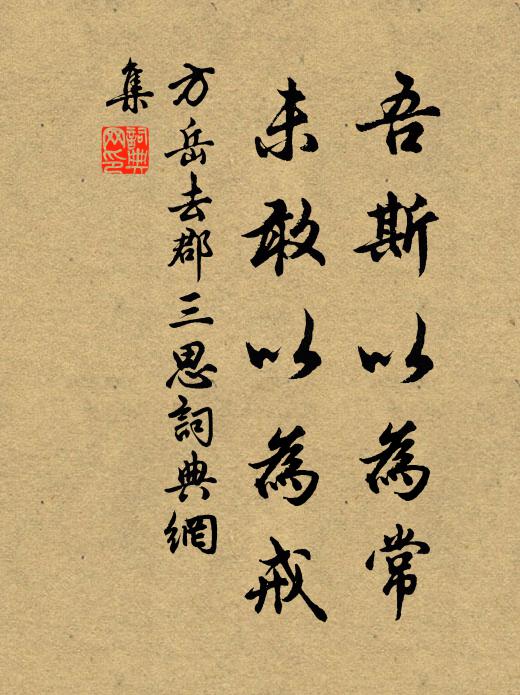 吾斯以為常
未敢以為戒
方岳去郡三思詞典網
集
詞典網印